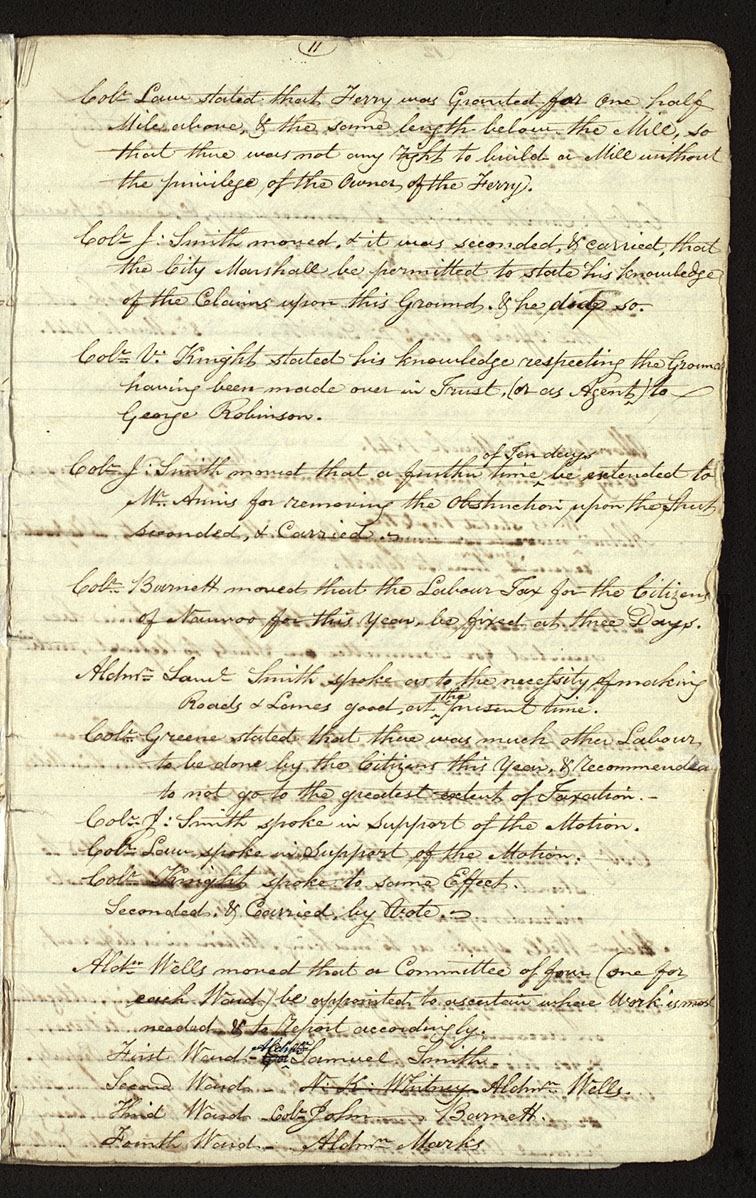 11
Colr. Law stated that Ferry was Granted for one half
Mile above, & the same length below the Mill, so
that there was not any right to build a Mill without
the privilege of the Owner of the Ferry.
Colr. J: Smith moved, & it was seconded, & carried, that
the City Marshall be permitted to state his knowledge
of the Claims upon this Ground. & he did so.
Colr. V. Knight stated his knowledge respecting the Ground
having been made over in Trust, (or as Agent,) to
George Robinson.
of Ten days
Colr. J: Smith moved that a further time be extended to
Mr. Annis for removing the Obstruction upon the Street
seconded, & Carried.
Colr. Barnett moved that the Labour Tax for the Citizens
of Nauvoo for this Year, be fixed at three Days.
Aldmn. Saml. Smith spoke as to the necessity of making
Roads & Lanes good, at the present time.
Colr. Greene stated that there was much other Labour
to be done by the Citizens this Year, & recommended
to not go to the greatest extent of Taxation. -
Colr. J: Smith spoke in Support of the Motion.
Colr. Law spoke in Support of the Motion.
Colr. Knight spoke to same Effect.
Seconded. & Carried, by Vote.
Aldn. Wells moved that a Committee of four (one for
each Ward) be appointed to ascertain where Work is most
needed & to report accordingly.
First Ward - Aldmn. Samuel Smith.
Second Ward - N: K: Whitney Aldmn. Wells.
Third Ward Colr. John Barnett.
Fourth Ward - Aldmn. Marks